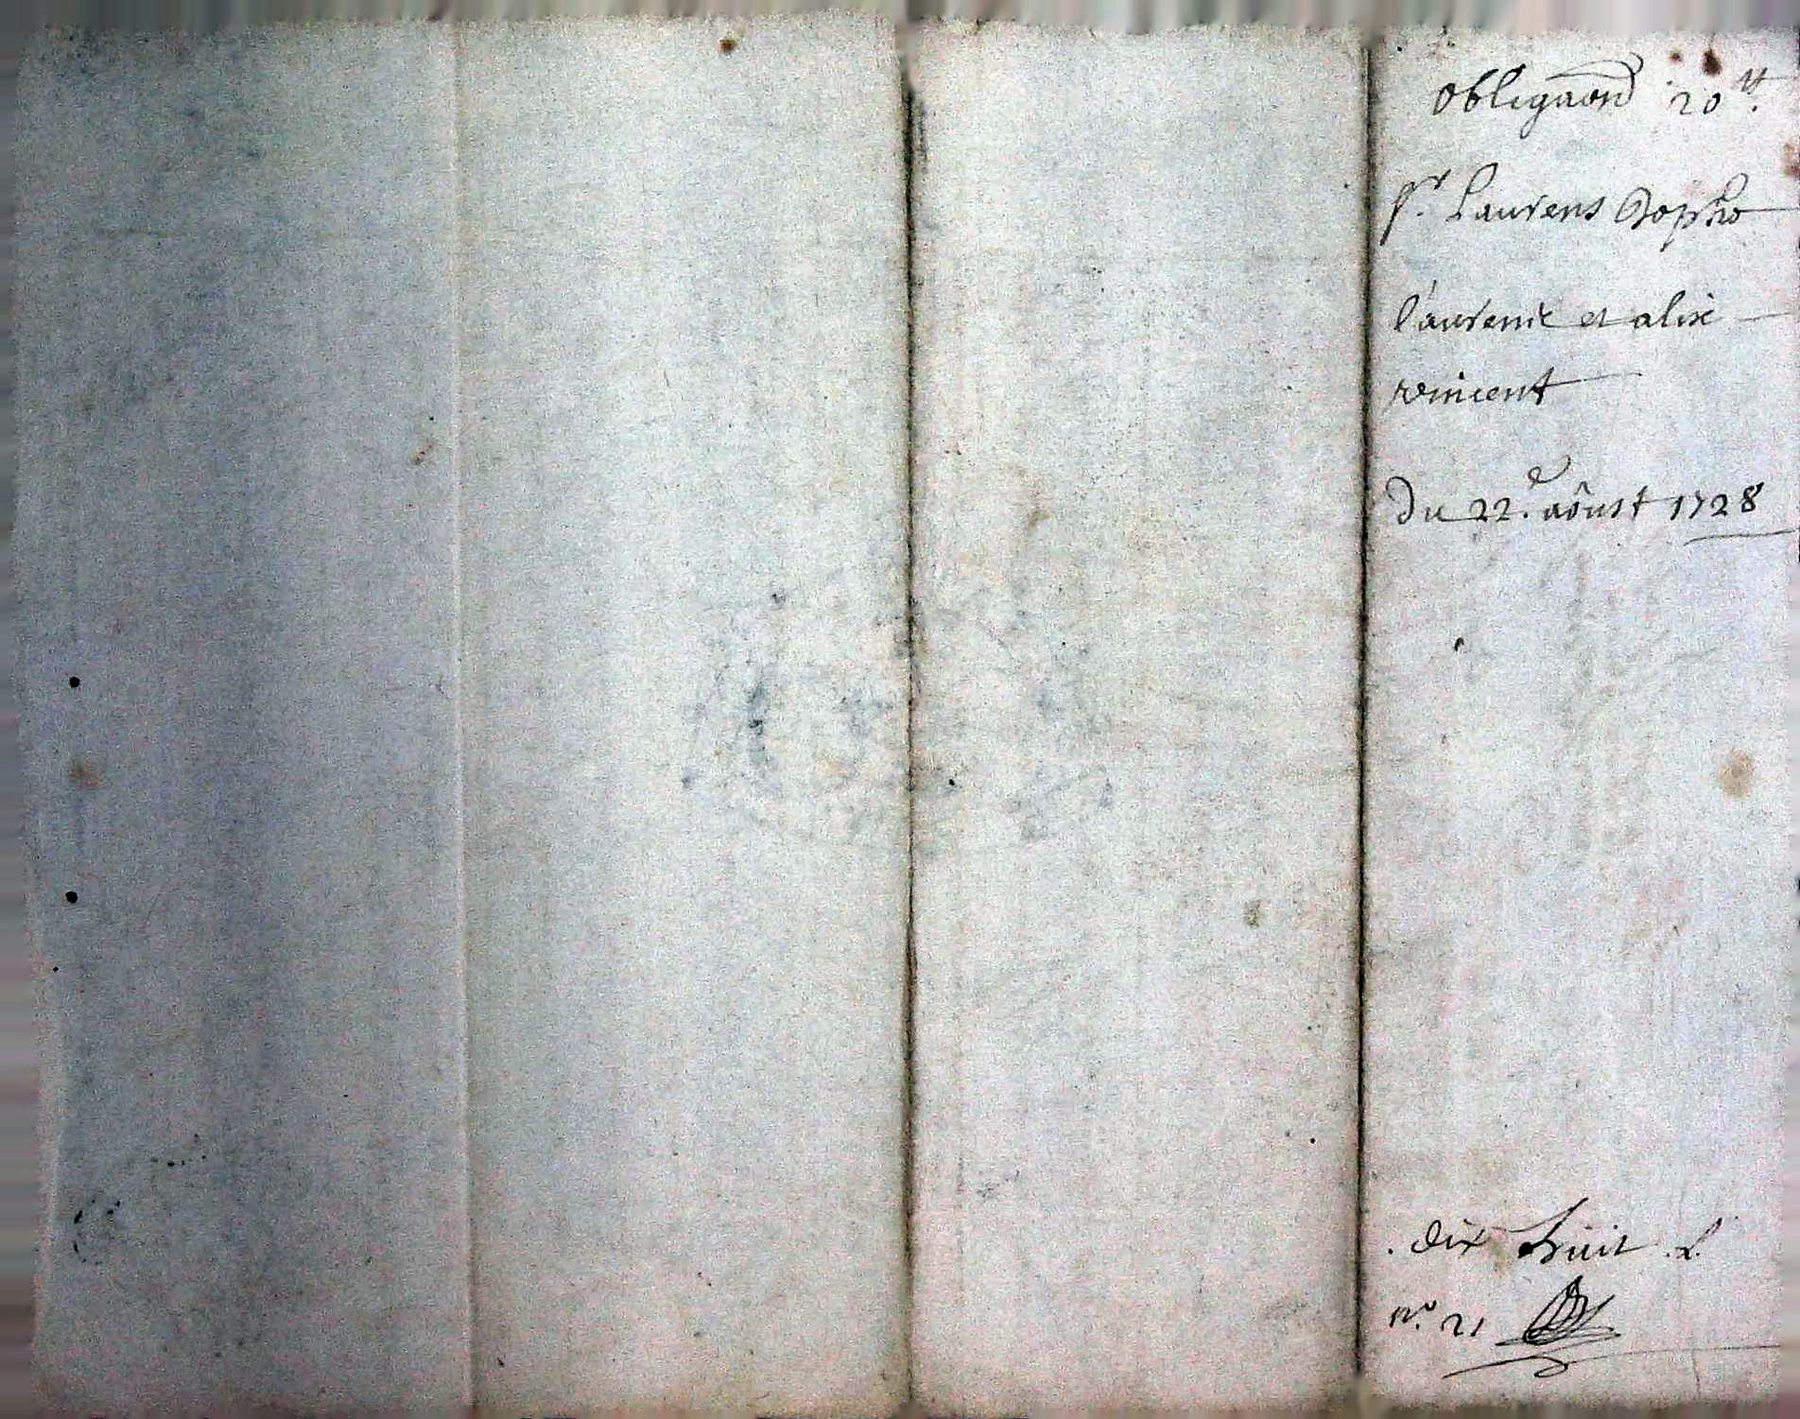 obligaõn 20 ₶.
Sr. Laurens Dopho
Laurent et alix
vincent
Du 22.e aôust 1728
. dix huit . L.
No. 21